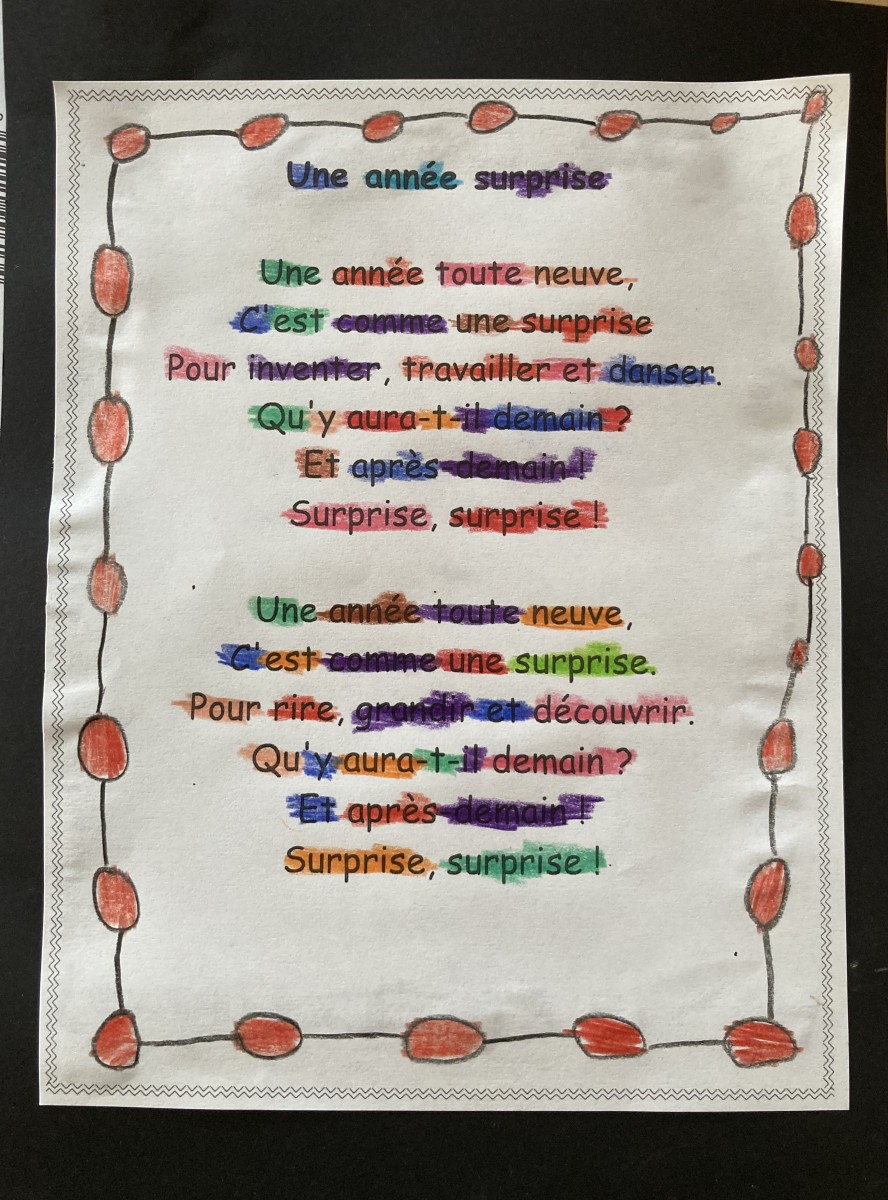 Une année surprise
Une année toute neuve,
C'est comme une surprise
Pour inventer, travailler et danser.
Qu'y aura-t-il demain ?
Et après-demain !
Surprise, surprise !
Une année toute neuve,
C'est comme une surprise.
Pour rire, grandir et découvrir.
Qu'y aura-t-il demain ?
Et après-demain !
Surprise, surprise !